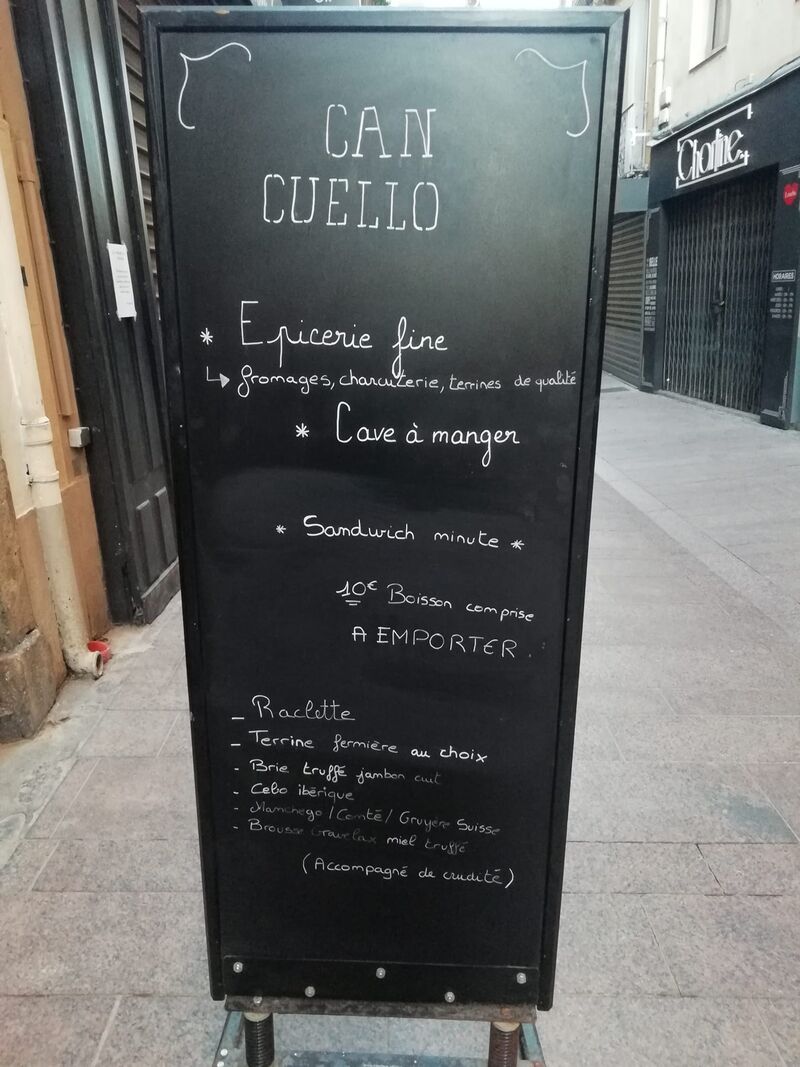 CAN
CUELLO
* Epicerie fine
↳ fromages, charcuterie, terrines de qualité
* Cave à manger
* Sandwich minute *
10€ Boisson comprise
A EMPORTER.
_ Raclette
_ Terrine fermière au choix
- Brie truffé jambon cuit
- Cebo ibérique
- Manchego / Comté / Gruyère Suisse
- Brousse gravelax miel truffé
(Accompagné de crudité)
Charline
HORAIRES